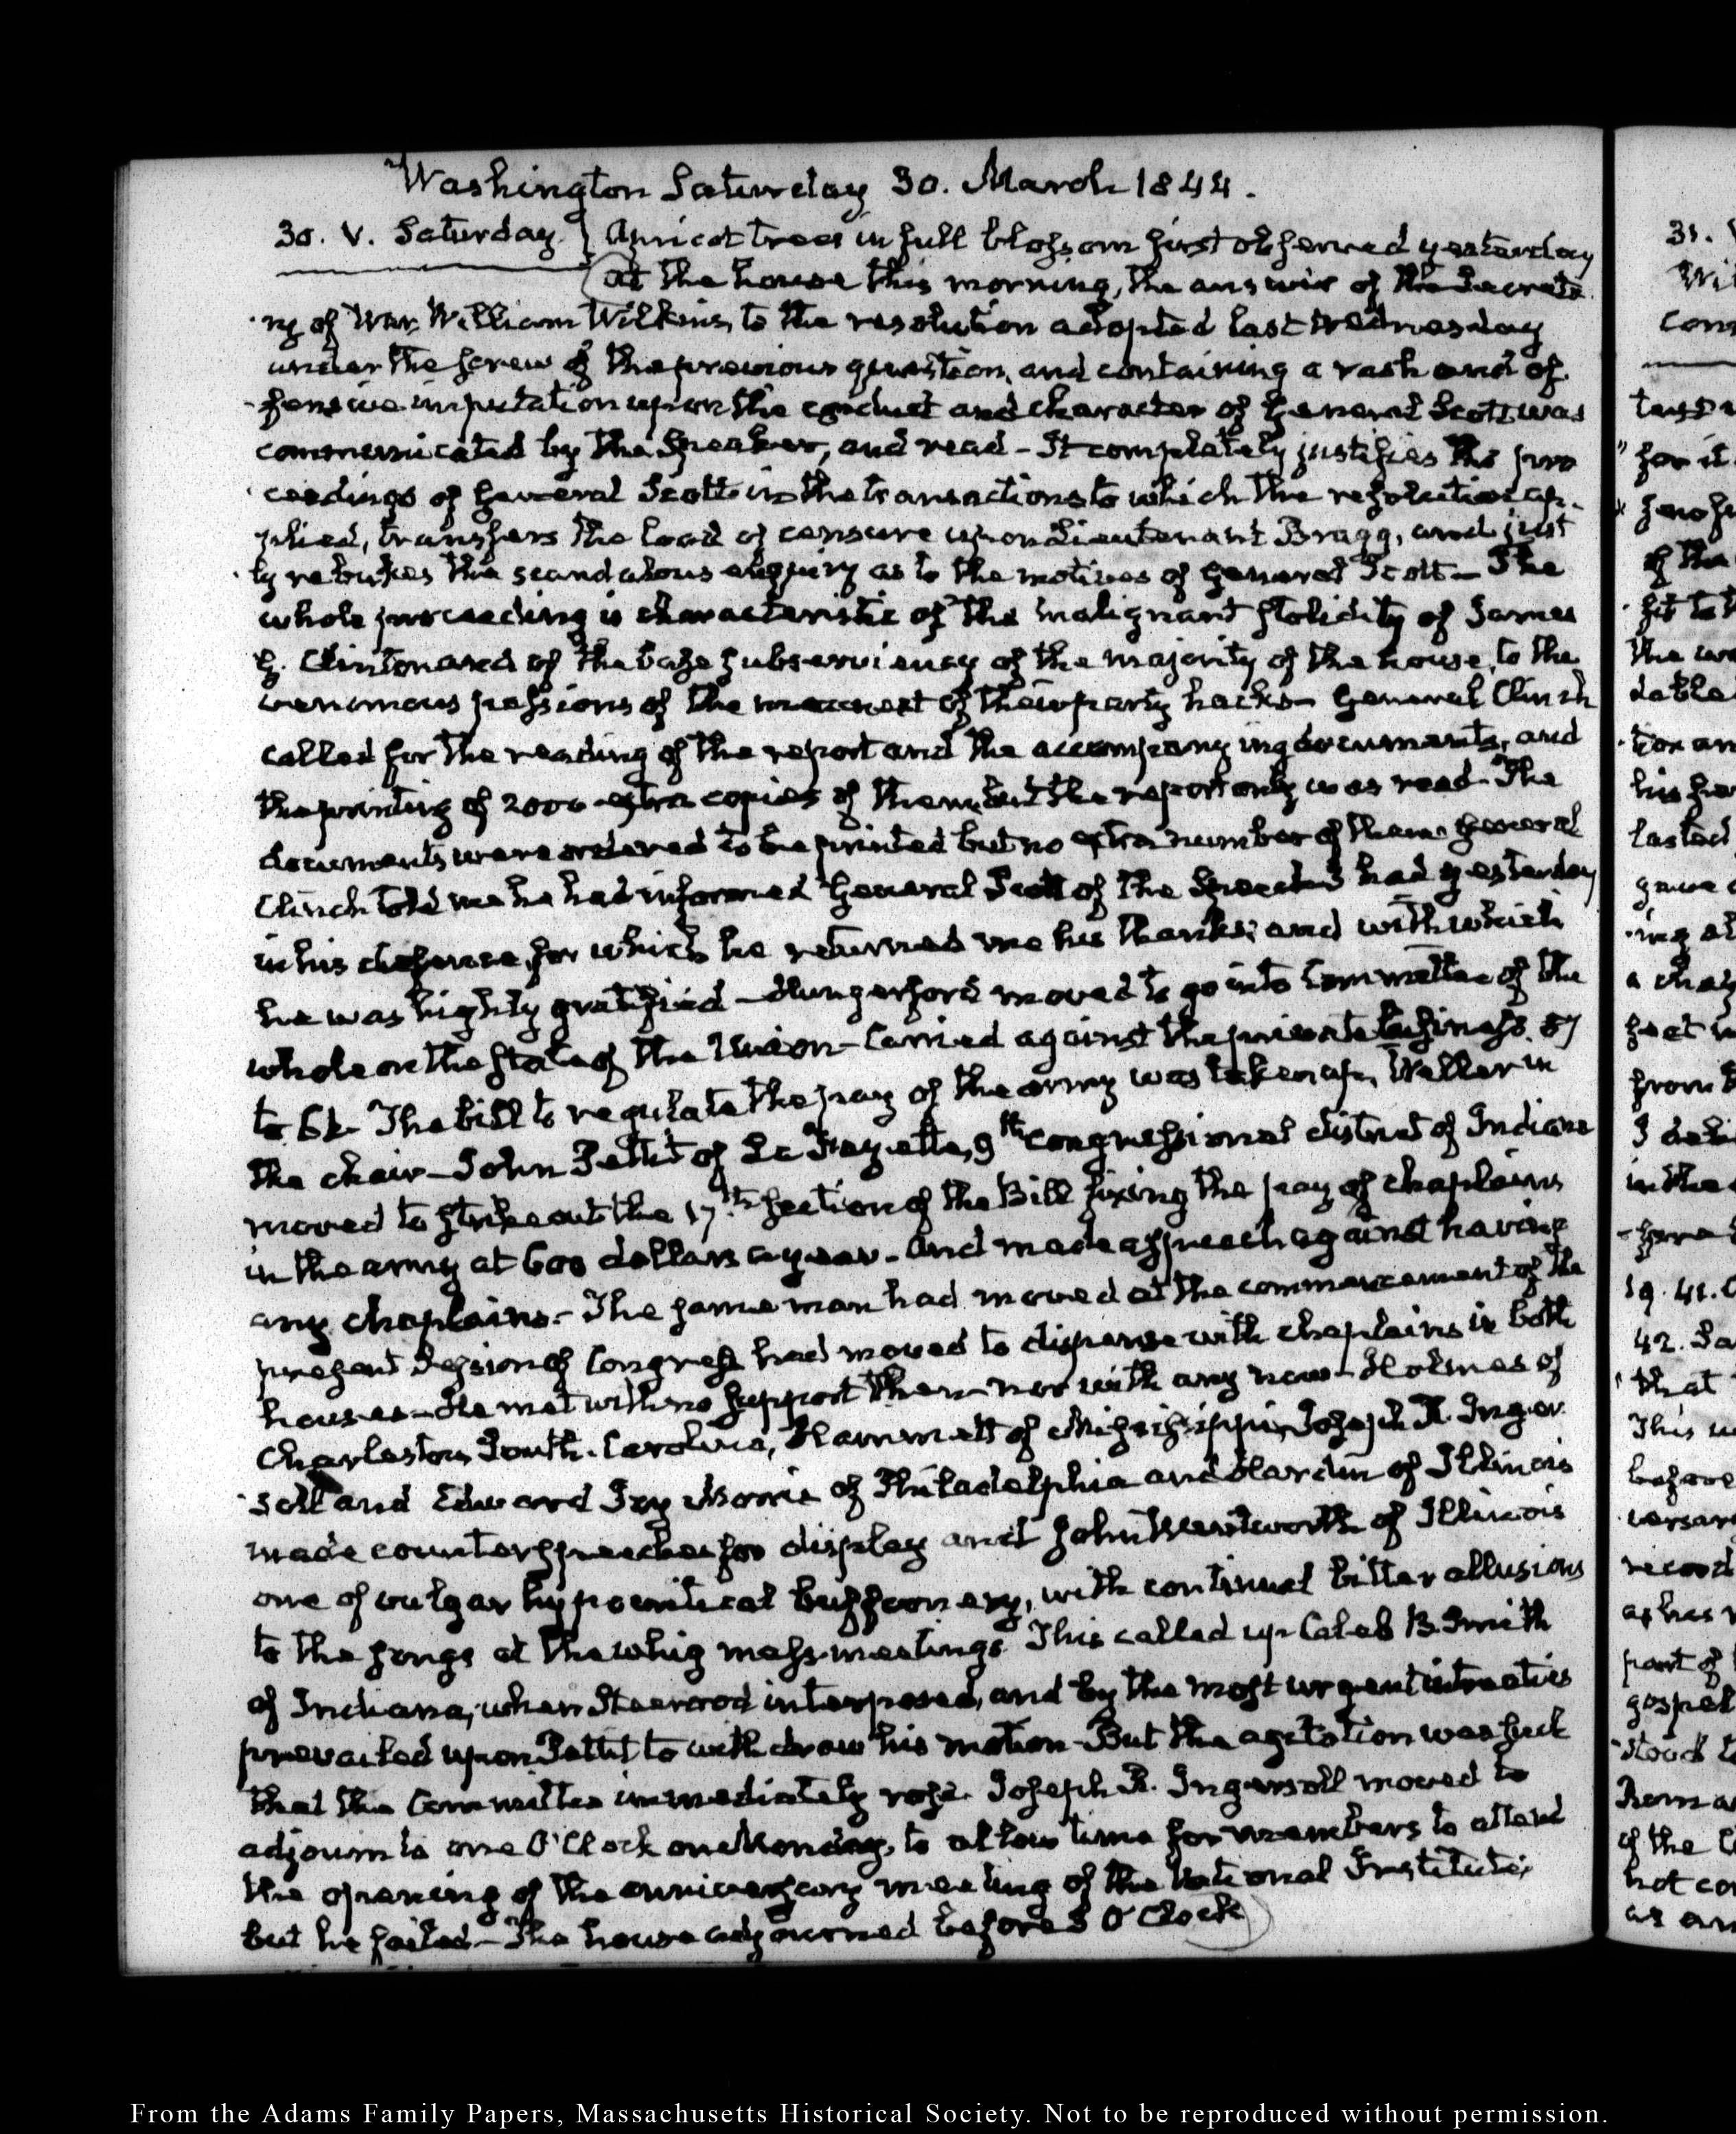 Washington Saturday 30. March 1844.
30. V. Saturday. } Apricot trees in full blossom first observed yesterday
At the house this morning, the answer of the Secreta-
ry of War, William Wilkins, to the resolution adopted last Wednesday
under the screw of the previous question, and containing a rash and of-
fensive imputation upon the conduct and character of General Scott was
communicated by the Speaker, and read – It completely justifies the pro
ceedings of General Scott in the transactions to which the resolution ap-
plied, transfers the load of censure upon Lieutenant Bragg, and just
ly rebukes the scandalous enquiry as to the motives of General Scott – The
whole proceeding is characteristic of the malignant stolidity of James
G. Clinton and of the base subserviency of the majority of the house, to the
venomous passions of the meanest of their party hacks – General Clinch
called for the reading of the report and the accompanying documents, and
the printing of 2000 extra copies of them, but the report only was read – The
documents were ordered to be printed but no extra number of them. General
Clinch told me he had informed General Scott of the Speech I had yesterday
in his defense, for which he returned me his thanks; and with which
he was highly gratified – Hungerford moved to go into Committee of the
whole on the state of the Union – Carried against the private business. 87
to 62 – The bill to regulate the pay of the army was taken up, Weller in
the chair – John Pettit of La Fayette, 9th. Congressional district of Indiana
moved to strike out the 17th. section of the Bill fixing the pay of chaplains
in the army at 600 dollars a year – And made a speech against having
any chaplains – The same man had moved at the commencement of the
present Session of Congress had moved to dispense with chaplains in both
houses – He met with no support then – nor with any now – Holmes of
Charleston, South-Carolina, Hammett of Mississippi, Joseph R. Inger-
soll and Edward Joy Morris of Philadelphia and Hardin of Illinois
made counter speeches for display and John Wentworth of Illinois
one of vulgar hypocritical buffoonery, with continual bitter allusions
to the songs at the whig mass-meetings. This called up Caleb B. Smith
of Indiana, when Steenrod interposed, and by the most urgent intreaties
prevailed upon Pettit to withdraw his motion – But the agitation was such
that the Committee immediately rose. Joseph R. Ingersoll moved to
adjourn to one O'Clock on Monday, to allow time for members to attend
the opening of the anniversary meeting of the National Institute;
but he failed – The house adjourned before 3 O'Clock
From the Adams Family Papers, Massachusetts Historical Society. Not to be reproduced without permission.